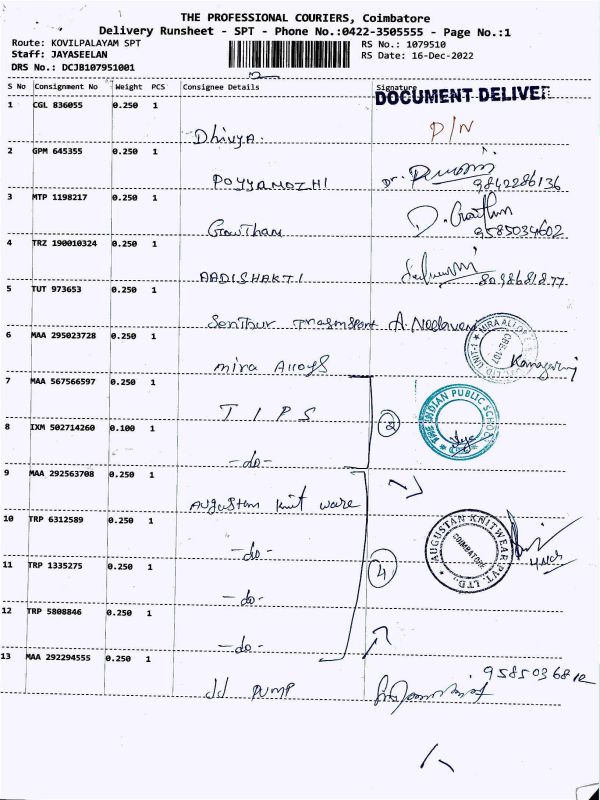 THE PROFESSIONAL COURIERS, Coimbatore
Delivery Runsheet - SPT - Phone No.:0422-3505555 - Page No.:1
Route: KOVILPALAYAM SPT RS No.: 1079510
Staff: JAYASEELAN RS Date: 16-Dec-2022
DRS No.: DCJB107951001
S No Consignment No Weight PCS Consignee Details Signature
DOCUMENT DELIVER
1 CGL 836055 0.250 1
Dhivya. P/N
2 GPM 645355 0.250 1
POYYAMOZHI Dr. 9842286136
3 MTP 1198217 0.250 1
Gowtham D. Gowthm 9585034602
4 TRZ 190010324 0.250 1
AADISHAKTI 8098681877
5 TUT 973653 0.250 1
Senthur Transport A. Neelaveni
6 MAA 295023728 0.250 1
mira Alloys
7 MAA 567566597 0.250 1
T I P S
THE INDIAN PUBLIC SCHOOL
8 IXM 502714260 0.100 1 2
-do-
9 MAA 292563708 0.250 1
Augustan knit ware
10 TRP 6312589 0.250 1
-do-
AUGUSTAN KNITWEAR PVT. LTD.,
COIMBATORE
11 TRP 1335275 0.250 1 4
-do-
12 TRP 5808846 0.250 1
-do-
13 MAA 292294555 0.250 1
JJ PUMP